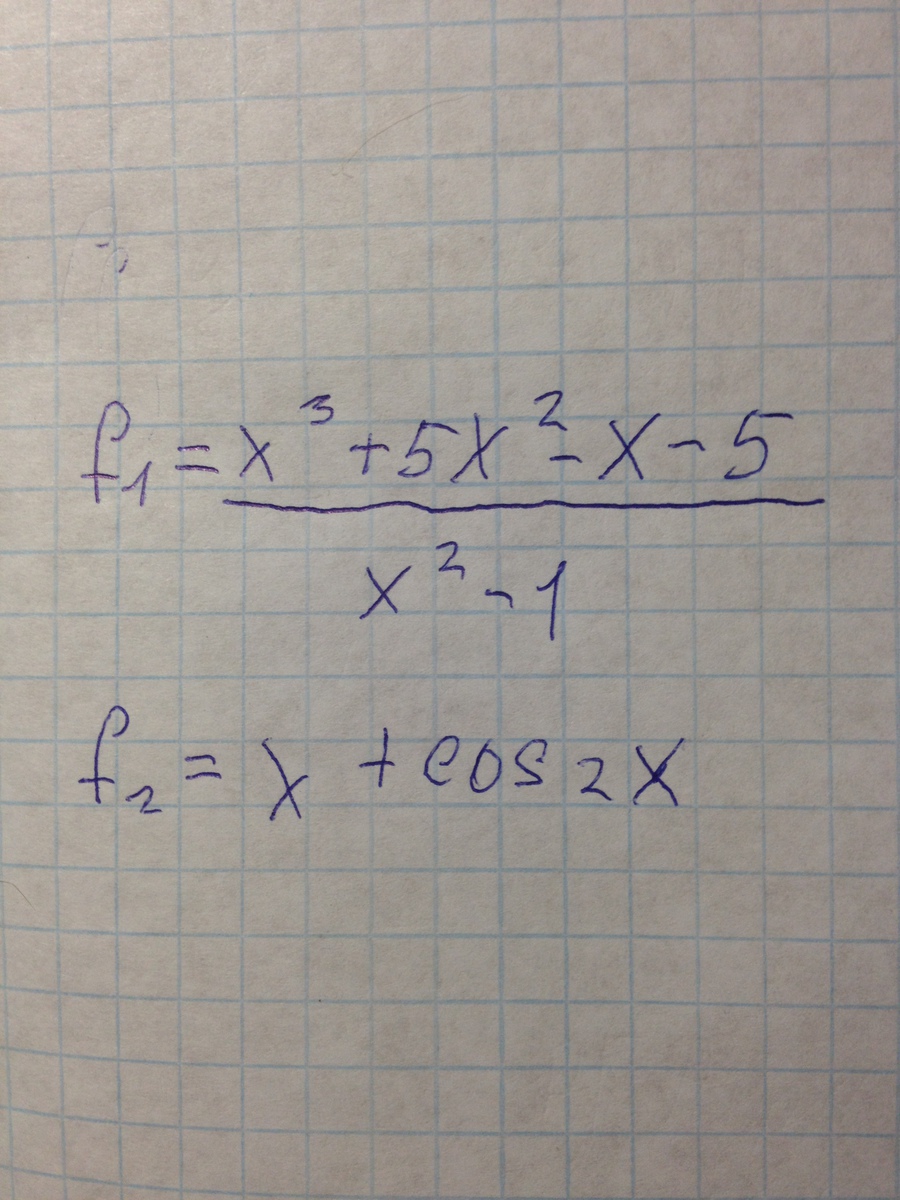 f₁ = x³ + 5x² - x - 5
x² - 1
f₂ = x + cos 2x